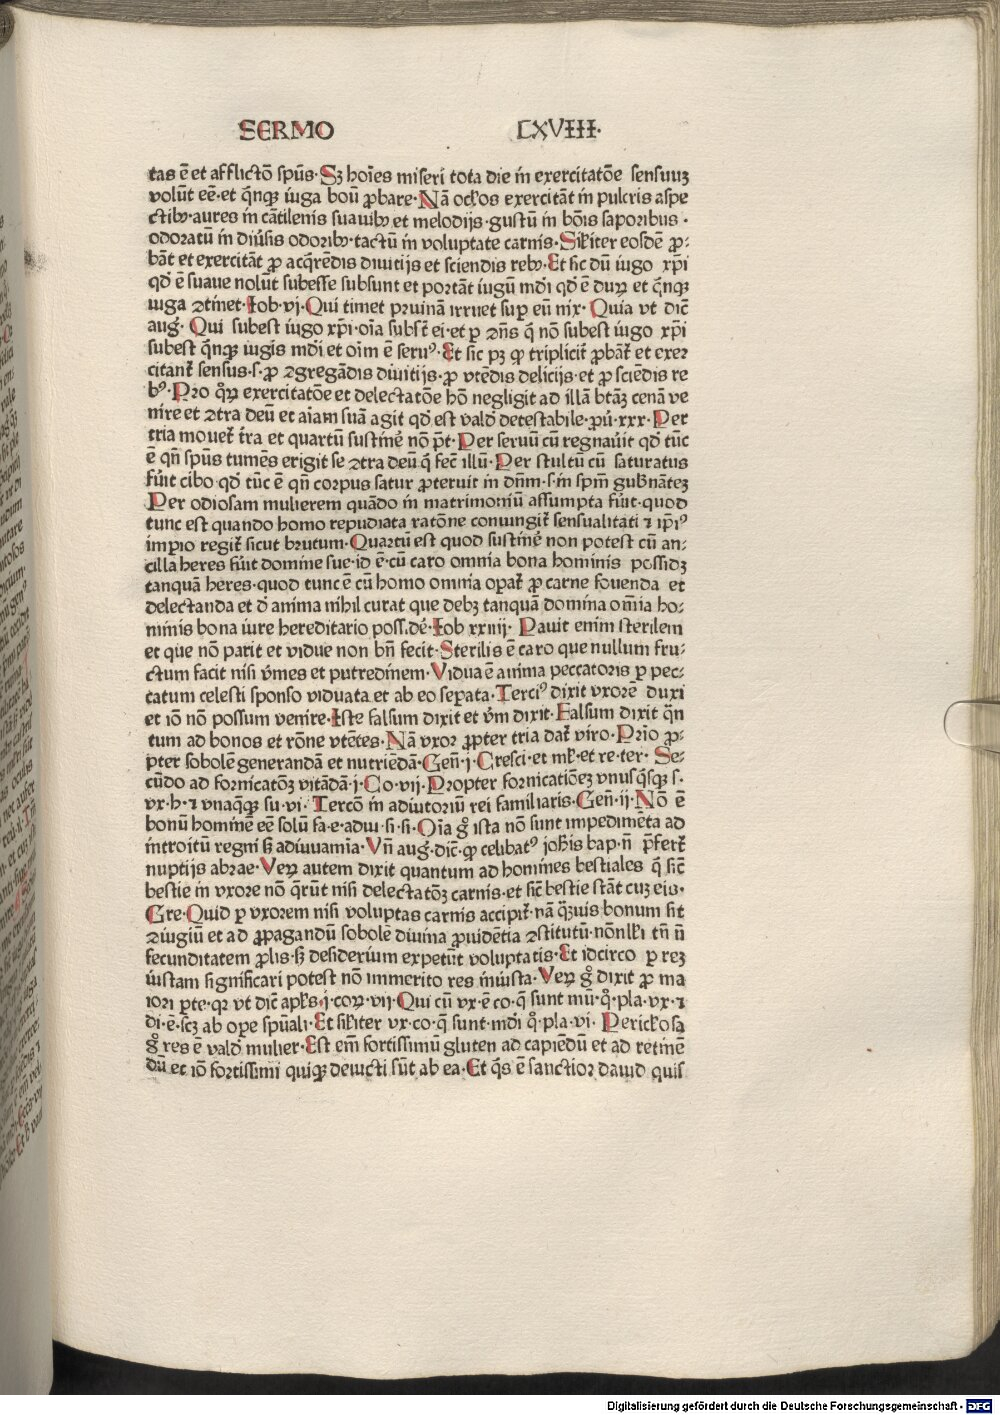 SERMO CXVIII·
tas ē et afflictō spūs·Sꝫ hoīes miseri tota die in exercitatōe sensuuꝫ
volūt eē·et q̄nqꝫ iuga boū ꝓbare·Nā oclōs exercitāt in pulcris aspe
ctibꝰ·aures in cātilenis suauibꝰ et melodijs·gustū in bōis saporibus·
odoratū in diūsis odoribꝰ·tactū in voluptate carnis·Silr̄iter eosdē ꝓ-
bāt et exercitāt ꝓ acq̄rēdis diuitijs et sciendis rebꝰ·Et sic dū iugo xp̄i
qd̄ ē suaue nolūt subesse subsunt et portāt iugū mūdi qd̄ ē duꝝ et q̄nqꝫ
iuga ꝯtinet·Iob·vj·Qui timet pruinā irruet suꝑ eū nix·Quia vt dic̄
auḡ·Qui subest iugo xp̄i·oīa subst̄ ei·et ꝑ ꝯn̄s q̄ nō subest iugo xp̄i
subest q̄nqꝫ iugis mūdi et oīm ē seruꝰ·Et sic pꝫ ꝙ triplicit̄ ꝓbāt̄ et exer
citant̄ sensus·s·ꝓ ꝯgregādis diuitijs·ꝓ vtēdis delicijs·et ꝓ sciēdis re
bꝰ·Pro qͦꝝ exercitatōe et delectatōe hō negligit ad illā btāꝫ cenā ve
nire et ꝯtra deū et aīam suā agit qd̄ est vald̄ detestabile·ꝓū·xxx·Per
tria mouet̄ t̄ra et quartū sustinē nō p̄t·Per seruū cū regnau̇it qd̄ tūc
ē qn̄ spūs tumēs erigit se ꝯtra deū q̄ fec̄ illū·Per stultū cū saturatus
fūit cibo qd̄ tūc ē qn̄ corpus satur ꝓteruit in dn̄m·s·in spm̄ gubn̄anteꝫ
Per odiosam mulierem quādo in matrimoniū assumpta fūit·quod
tunc est quando homo repudiata ratōne coniungit̄ sensualitati ⁊ ip̄iꝰ
imꝑio regit̄ sicut brutum·Quartū est quod sustinē non potest cū an-
cilla heres fūit domine sue·id ē·cū caro omnia bona hominis possidꝫ
tanquā heres·quod tunc ē cū homo omnia opat̄ ꝓ carne fouenda et
delectanda et d̄ anima nihil curat que debꝫ tanquā domina om̄ia ho-
minis bona iure hereditario possidē·Iob xxiiij·Pauit enim sterilem
et que nō parit et vidue non bn̄ fecit·Sterilis ē caro que nullum fru-
ctum facit nisi v̄mes et putredinem·Vidua ē anima peccatoris ꝑ pec-
catum celesti sponso viduata et ab eo seꝑata·Terciꝰ dixit vxorē duxi
et iō nō possum venire·Iste falsum dixit et v̄m dixit·Falsum dixit q̄n
tum ad bonos et rōne vtētes·Nā vxor ꝓpter tria dat̄ viro·Prīo ꝓ-
pter sobolē generandā et nutriēdā·Gen̄·j·Cresci·et ml̄·et re·ter·Se-
cūdo ad fornicatōꝫ vitādā·j·Co·vij·Propter fornicationeꝫ vnusqͥsqꝫ s·
vx·h·⁊ vnaq̄qꝫ su·vi·Tercō in adiutoriū rei familiaris·Gen̄·ij·Nō ē
bonū hominē eē solū fa·e·adiu·si·si·Oīa gͦ ista nō sunt impedimēta ad
introitū regni sꝫ adiuuamīa·Vn̄ auḡ·dic̄·ꝙ celibatꝰ joh̄is bap·n̄ p̄fert̄
nuptijs abrae·Veꝝ autem dixit quantum ad homines bestiales q̄ sic̄
bestie in vxore nō q̄rūt nisi delectatōꝫ carnis·et sic̄ bestie stāt cuꝫ eis·
Gre·Quid ꝑ vxorem nisi voluptas carnis accipit̄·nā qͣꝫuis bonum sit
ꝯiugiū et ad ꝓpagandū sobolē diuina ꝓuidētia ꝯstitutū·nōnlli̇ tn̄ ū
fecunditatem ꝓlis·sꝫ desiderium expetūt voluptatis·Et idcirco ꝑ reꝫ
iustam significari potest nō immerito res iniusta·Veꝝ gͦ dixit ꝓ ma
iori ꝑte·qꝛ vt dic̄ apl̄s·j·coꝝ·vij·Qui cū vx·ē co·q̄ sunt mū·qͦ·pla·vx·⁊
di·ē·scꝫ ab oꝑe spūali·Et silr̄iter vx·co·q̄ sunt·mūdi qͦ·pla·vi·Pericl̄osa
gͦ res ē vald̄ mulier·Est em̄ fortissimū gluten ad capiēdū et ad retinē
dū et iō fortissimi quiqꝫ deuicti sūt ab ea·Et qͥs ē sanctior dauid quis
Digitalisierung gefördert durch die Deutsche Forschungsgemeinschaft - DFG